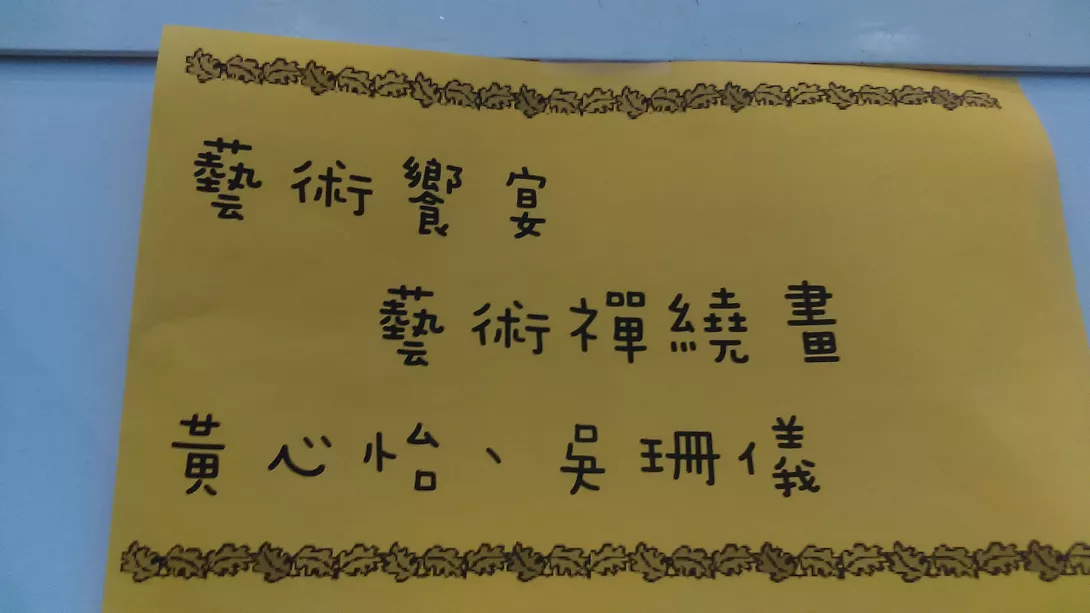 藝術饗宴
藝術禪繞畫
黃心怡、吳珊儀